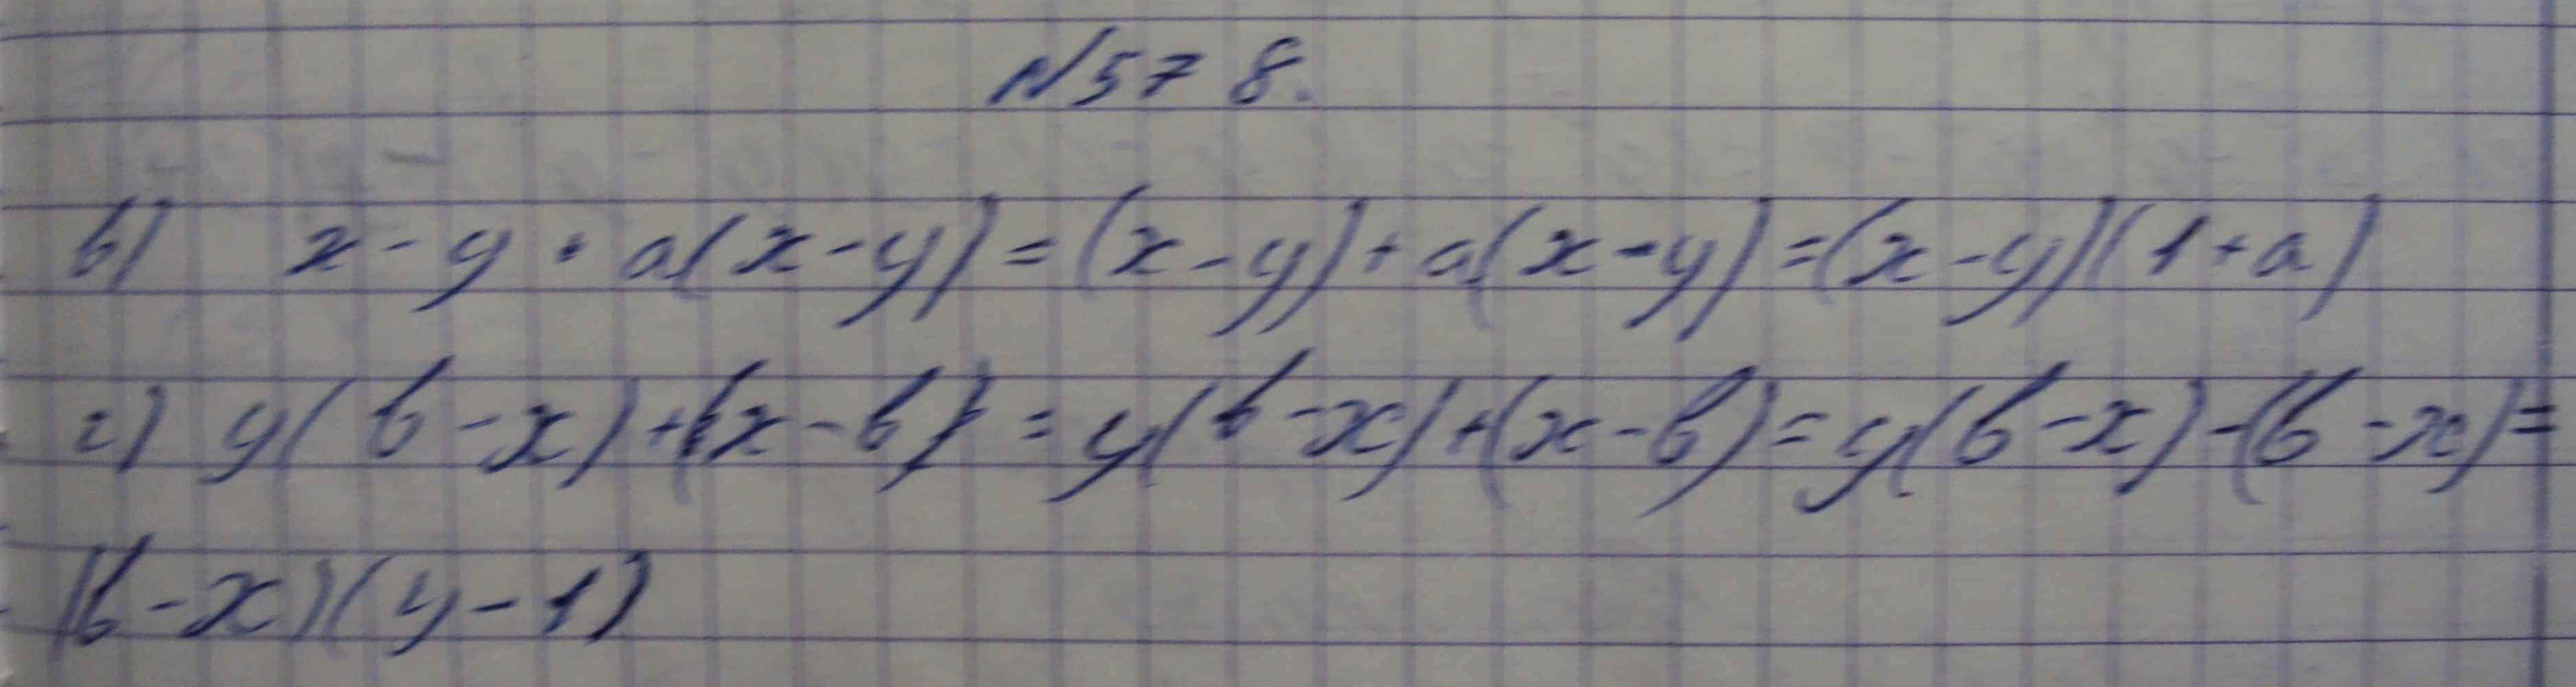 №578.
в) x-y+a(x-y)=(x-y)+a(x-y)=(x-y)(1+a)
г) y(b-x)+(x-b)=y(b-x)+(x-b)=y(b-x)-(b-x)=
(b-x)(y-1)